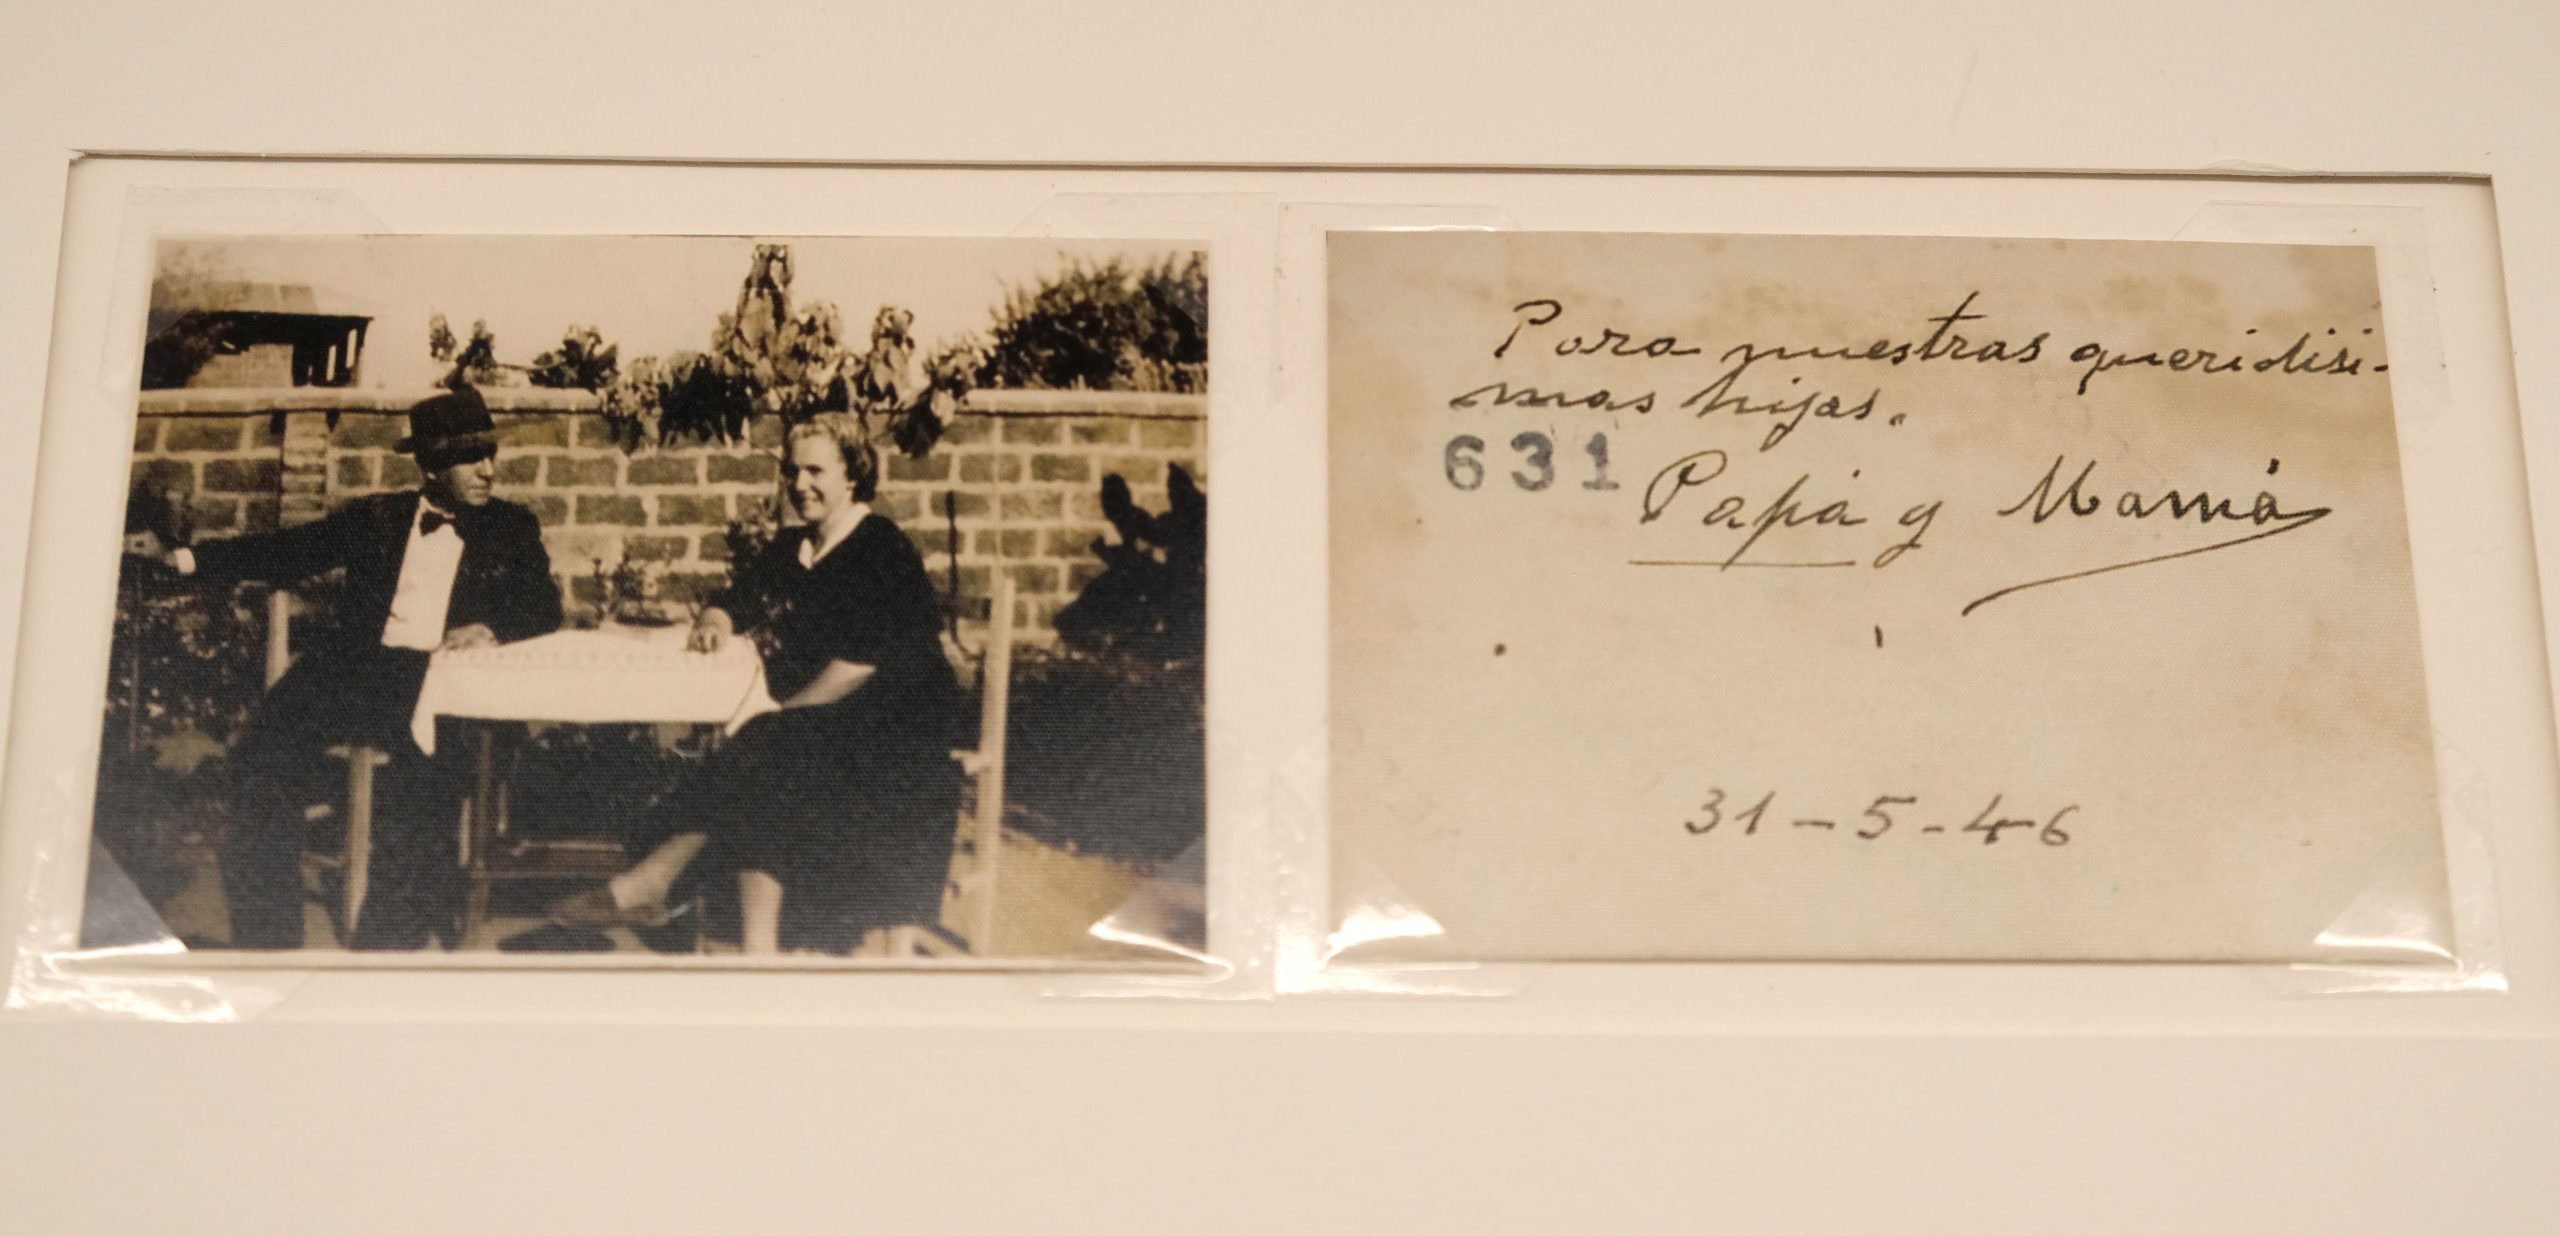 Para nuestras queridisi-
mas hijas.
631
Papá y Mamá
31-5-46